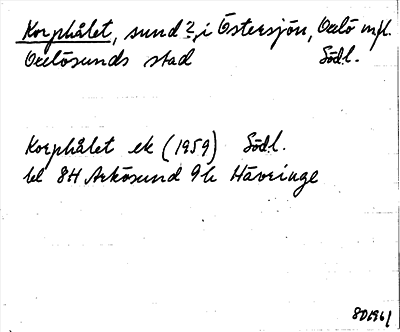 Korphålet, sund?, i Östersjön, Oxelö mfl.
Oxelösunds stad Södl.
Korphålet ek (1959) Södl.
bl 8H Arkösund 9b Hävringe